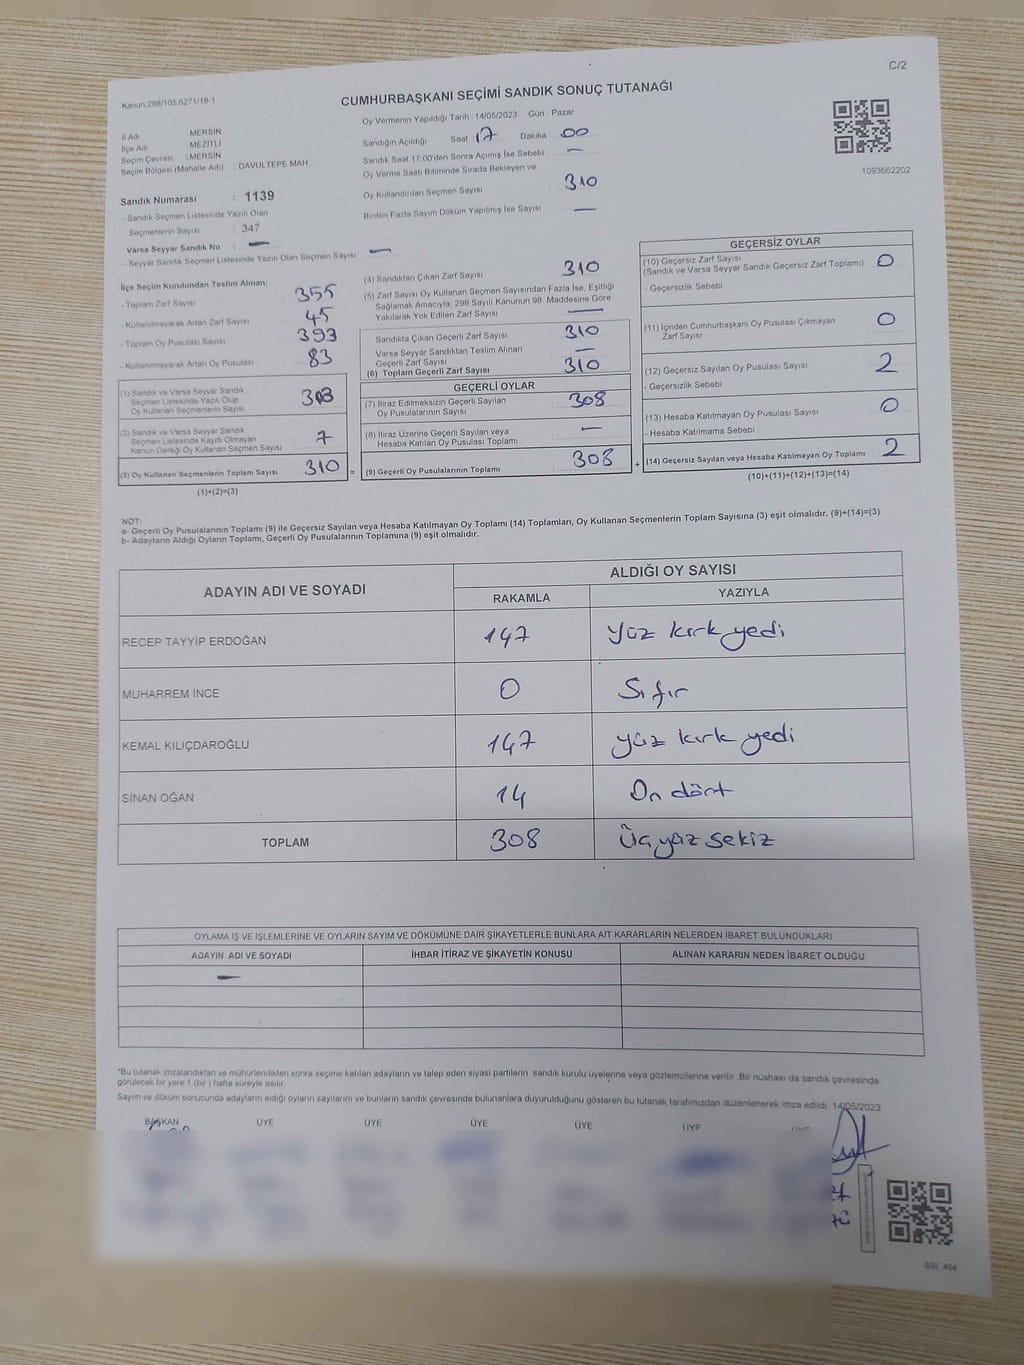 C/2
Kanun:298/105;6271/18-1
CUMHURBAŞKANI SEÇİMİ SANDIK SONUÇ TUTANAĞI
Oy Vermenin Yapıldığı Tarih : 14/05/2023 Gün : Pazar
İl Adı : MERSİN
İlçe Adı : MEZİTLİ
Seçim Çevresi : MERSİN
Seçim Bölgesi (Mahalle Adı) : DAVULTEPE MAH
Sandık Numarası : 1139
- Sandık Seçmen Listesinde Yazılı Olan
Seçmenlerin Sayısı : 347
Varsa Seyyar Sandık No : —
- Seyyar Sandık Seçmen Listesinde Yazılı Olan Seçmen Sayısı : —
Sandığın Açıldığı Saat 17 Dakika : 00
Sandık Saat 17:00'den Sonra Açımış İse Sebebi : —
Oy Verme Saati Bitiminde Sırada Bekleyen ve
Oy Kullandırılan Seçmen Sayısı : 310
Birden Fazla Sayım Döküm Yapılmış İse Sayısı : —
1093662202
İlçe Seçim Kurulundan Teslim Alınan;
- Toplam Zarf Sayısı : 355
- Kullanılmayarak Artan Zarf Sayısı : 45
- Toplam Oy Pusulası Sayısı : 393
- Kullanılmayarak Artan Oy Pusulası : 83
(1) Sandık ve Varsa Seyyar Sandık
Seçmen Listesinde Yazılı Olup
Oy Kullanan Seçmenlerin Sayısı 303
(2) Sandık ve Varsa Seyyar Sandık
Seçmen Listesinde Kayıtlı Olmayan
Kanun Gereği Oy Kullanan Seçmen Sayısı 7
(3) Oy Kullanan Seçmenlerin Toplam Sayısı 310 =
(1)+(2)=(3)
(4) Sandıktan Çıkan Zarf Sayısı : 310
(5) Zarf Sayısı Oy Kullanan Seçmen Sayısından Fazla İse, Eşitliği
Sağlamak Amacıyla, 298 Sayılı Kanunun 98. Maddesine Göre
Yakılarak Yok Edilen Zarf Sayısı : —
Sandıkta Çıkan Geçerli Zarf Sayısı : 310
Varsa Seyyar Sandıktan Teslim Alınan
Geçerli Zarf Sayısı : —
(6) Toplam Geçerli Zarf Sayısı : 310
GEÇERLİ OYLAR
(7) İtiraz Edilmeksizin Geçerli Sayılan
Oy Pusulalarının Sayısı : 308
(8) İtiraz Üzerine Geçerli Sayılan veya
Hesaba Katılan Oy Pusulası Toplamı : —
(9) Geçerli Oy Pusulalarının Toplamı : 308 +
GEÇERSİZ OYLAR
(10) Geçersiz Zarf Sayısı
(Sandık ve Varsa Seyyar Sandık Geçersiz Zarf Toplamı) : 0
- Geçersizlik Sebebi :
(11) İçinden Cumhurbaşkanı Oy Pusulası Çıkmayan
Zarf Sayısı : 0
(12) Geçersiz Sayılan Oy Pusulası Sayısı : 2
- Geçersizlik Sebebi :
(13) Hesaba Katılmayan Oy Pusulası Sayısı : 0
- Hesaba Katılmama Sebebi :
(14) Geçersiz Sayılan veya Hesaba Katılmayan Oy Toplamı : 2
(10)+(11)+(12)+(13)=(14)
NOT:
a- Geçerli Oy Pusulalarının Toplamı (9) ile Geçersiz Sayılan veya Hesaba Katılmayan Oy Toplamı (14) Toplamları, Oy Kullanan Seçmenlerin Toplam Sayısına (3) eşit olmalıdır. (9)+(14)=(3)
b- Adayların Aldığı Oyların Toplamı, Geçerli Oy Pusulalarının Toplamına (9) eşit olmalıdır.
ADAYIN ADI VE SOYADI ALDIĞI OY SAYISI
RAKAMLA YAZIYLA
RECEP TAYYİP ERDOĞAN 147 yüz kırk yedi
MUHARREM İNCE 0 Sıfır
KEMAL KILIÇDAROĞLU 147 yüz kırk yedi
SİNAN OĞAN 14 On dört
TOPLAM 308 Üçyüz sekiz
OYLAMA İŞ VE İŞLEMLERİNE VE OYLARIN SAYIM VE DÖKÜMÜNE DAİR ŞİKAYETLERLE BUNLARA AİT KARARLARIN NELERDEN İBARET BULUNDUKLARI
ADAYIN ADI VE SOYADI İHBAR İTİRAZ VE ŞİKAYETİN KONUSU ALINAN KARARIN NEDEN İBARET OLDUĞU
—
*Bu tutanak imzalandıktan ve mühürlendikten sonra seçime katılan adayların ve talep eden siyasi partilerin sandık kurulu üyelerine veya gözlemcilerine verilir. Bir nüshası da sandık çevresinde
görülecek bir yere 1 (bir ) hafta süreyle asılır.
Sayım ve döküm sonucunda adayların aldığı oyların sayılarını ve bunların sandık çevresinde bulunanlara duyurulduğunu gösteren bu tutanak tarafımızdan düzenlenerek imza edildi. 14/05/2023
BAŞKAN ÜYE ÜYE ÜYE ÜYE ÜYE ÜYE